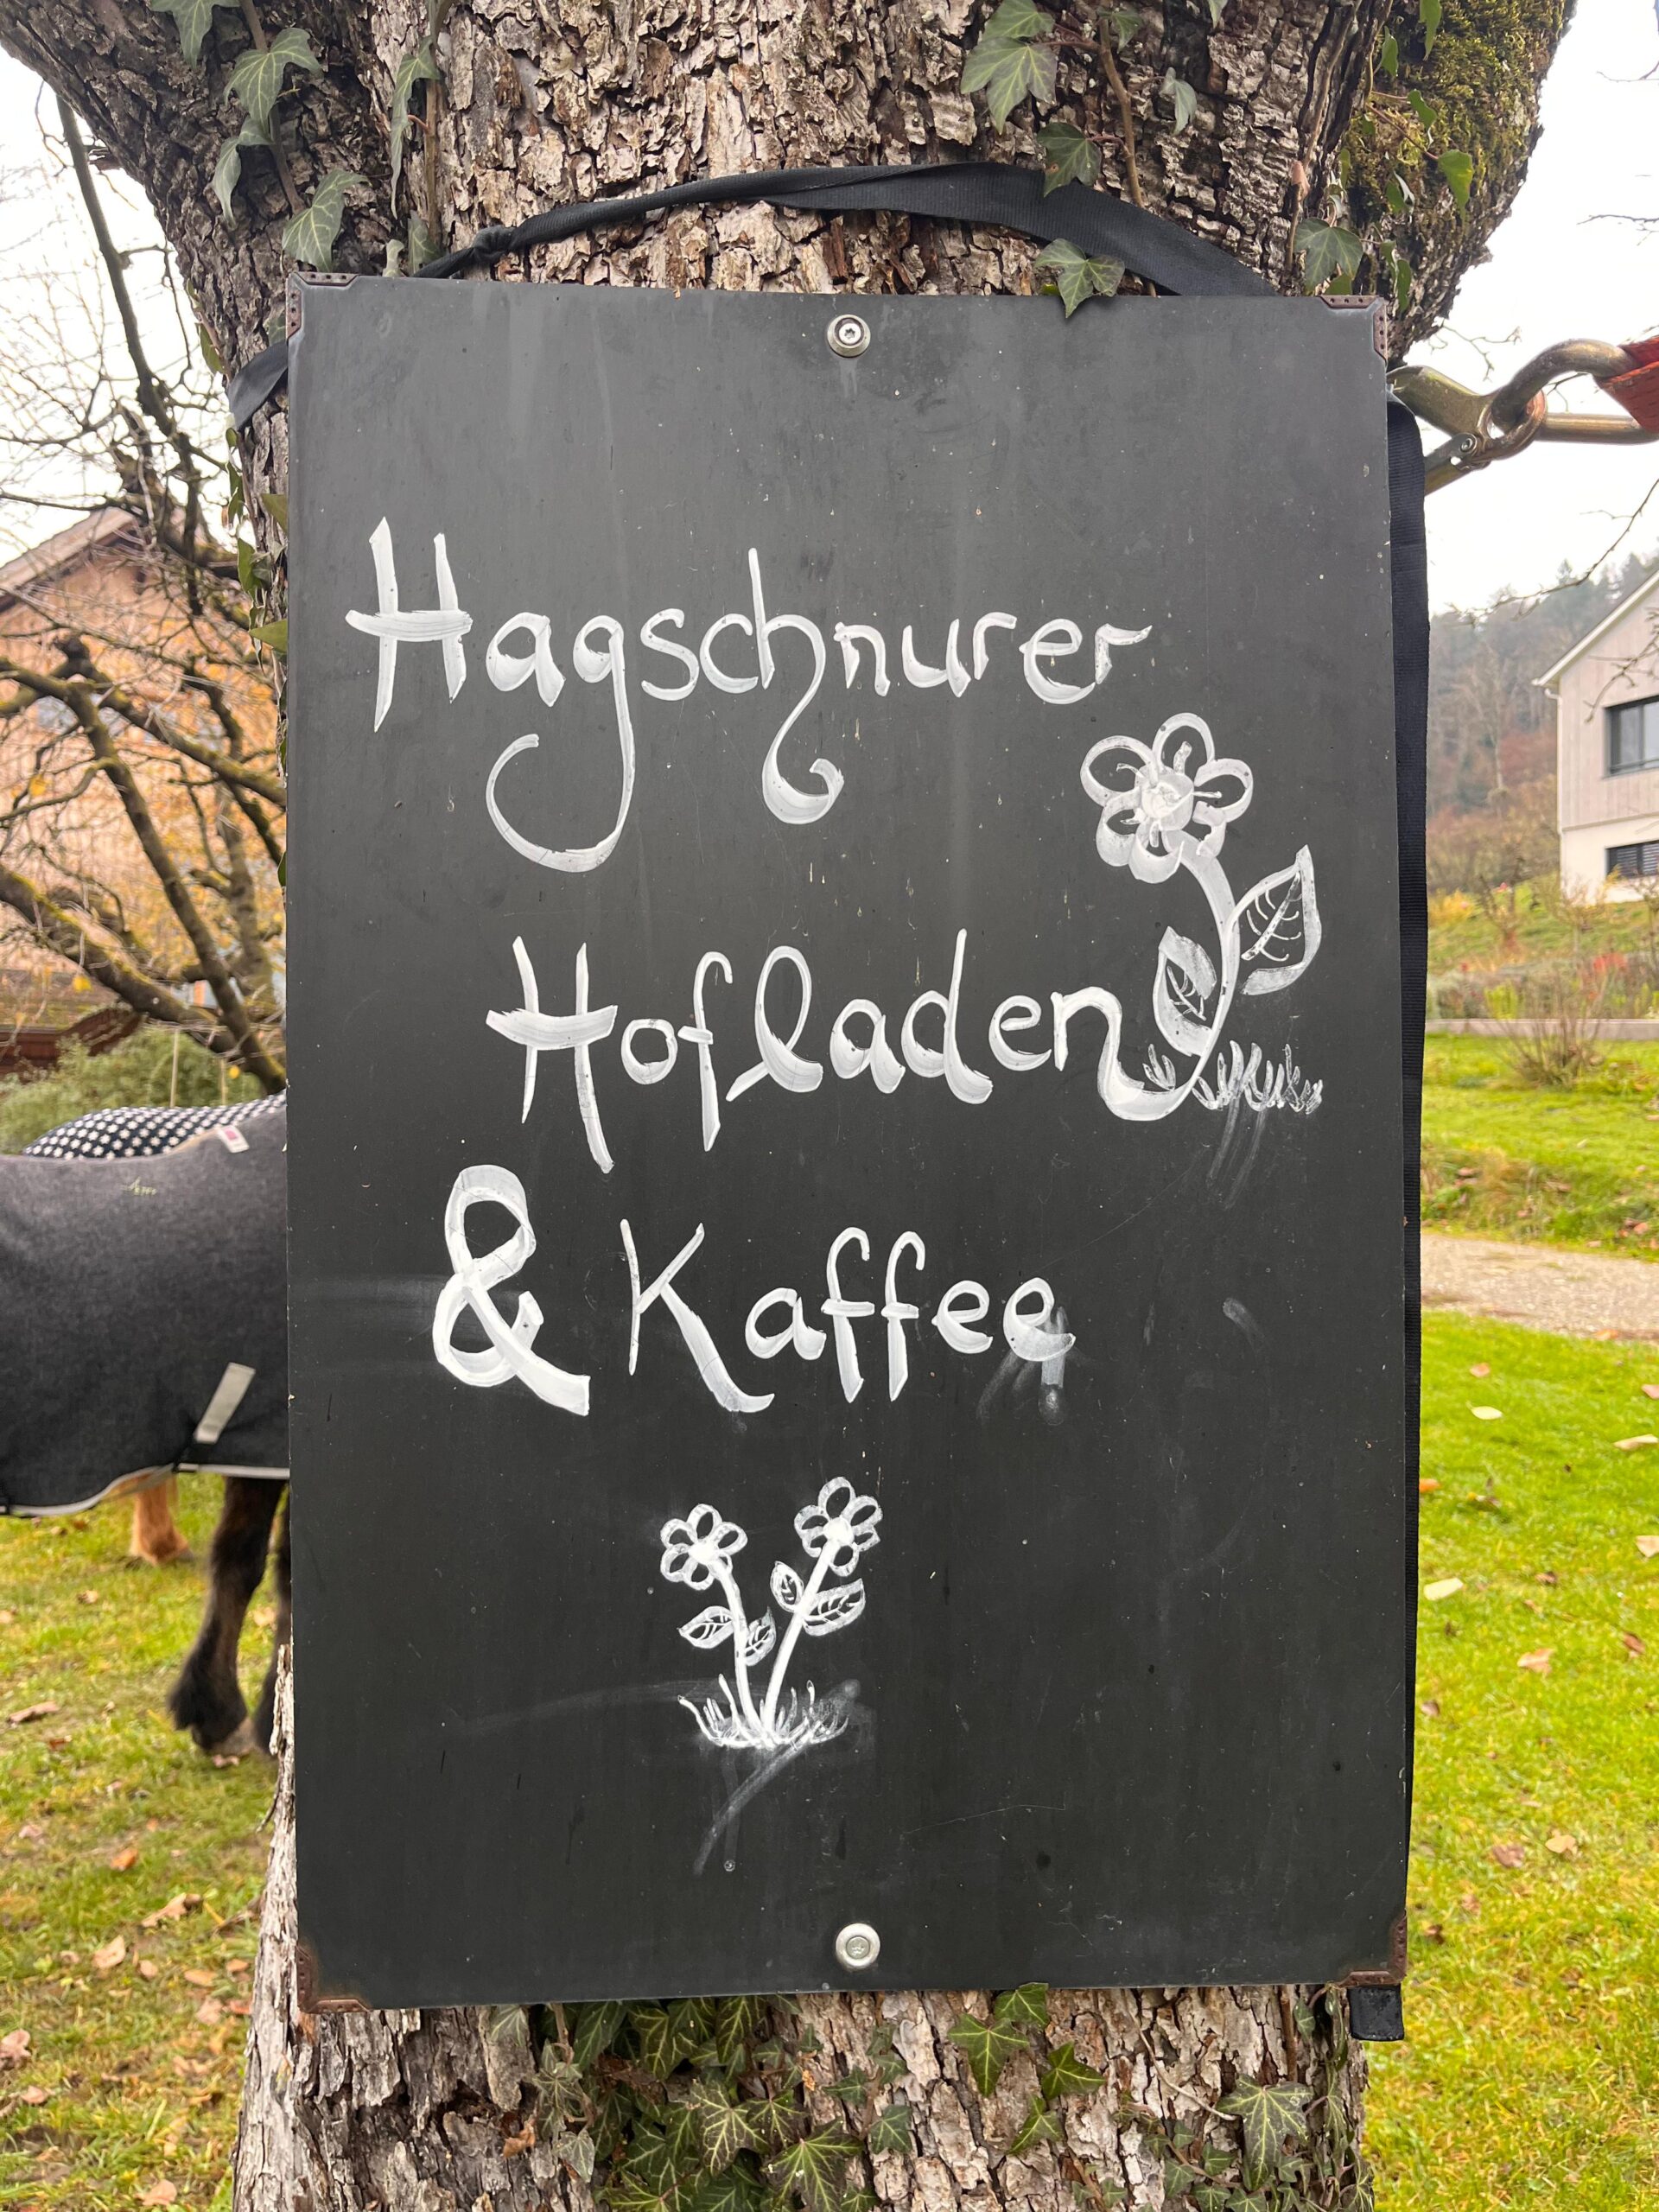 Hagschnurer
Hofladen
& Kaffee